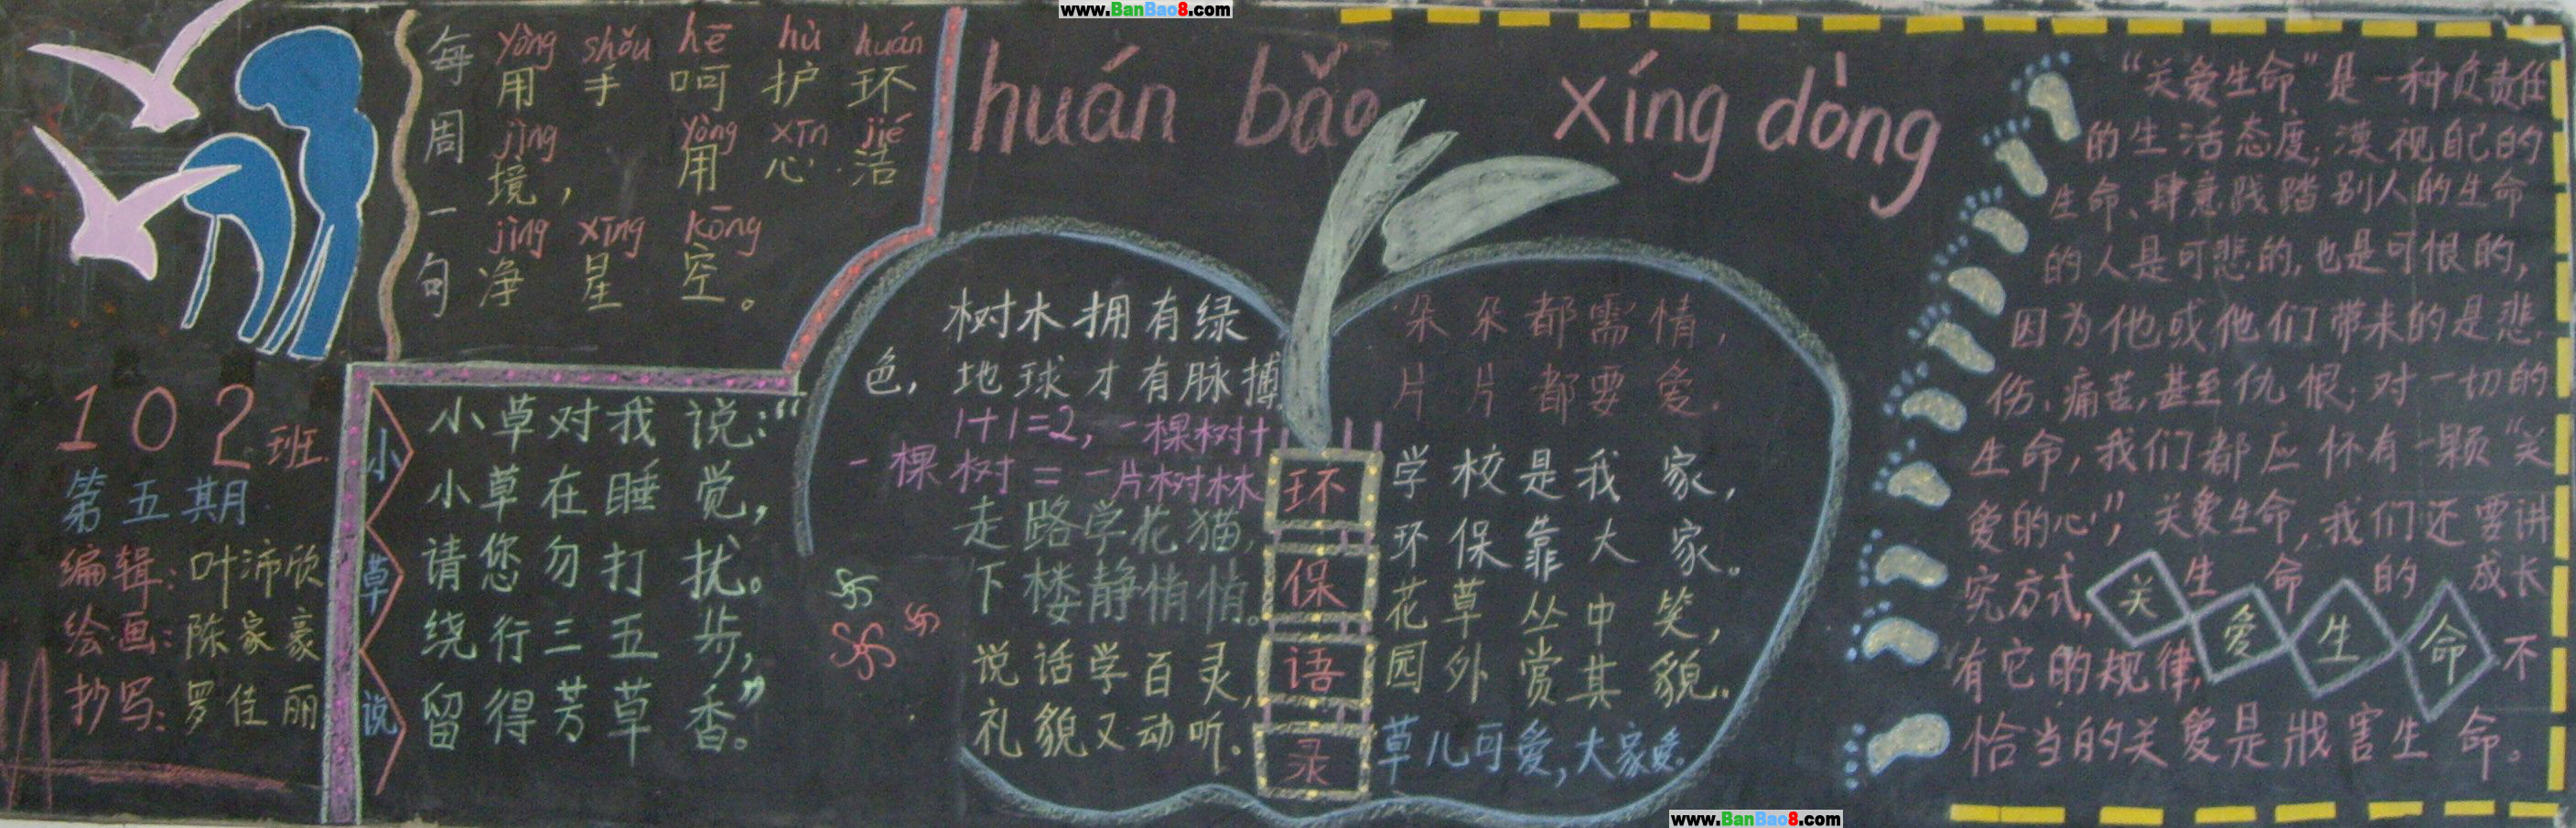 www.BanBao8.com
每周一句
yòng shǒu hē hù huán
用手呵护环
jìng yòng xīn jié
境，用心洁
jìng xīng kōng
净星空。
102班
第五期
编辑：叶沛欣
绘画：陈家豪
抄写：罗佳丽
小草说
小草对我说：“
小草在睡觉，
请您勿打扰。
绕行三五步，
留得芳草香”。
huán bǎo xíng dòng
树木拥有绿
色，地球才有脉搏
1+1=2，一棵树+
一棵树=一片树林
走路学花猫，
下楼静悄悄。
说话学百灵，
礼貌又动听。
环保语录
朵朵都需情，
片片都要爱。
学校是我家，
环保靠大家。
花草丛中笑，
园外赏其貌。
草儿可爱，大家爱。
“关爱生命”是一种负责任
的生活态度；漠视自己的
生命、肆意践踏别人的生命
的人是可悲的，也是可恨的，
因为他或他们带来的是悲
伤、痛苦，甚至仇恨；对一切的
生命，我们都应怀有一颗“关
爱的心”，关爱生命，我们还要讲
究方式，生命的成长
关爱生命
有它的规律，不
恰当的关爱是戕害生命。
www.BanBao8.com